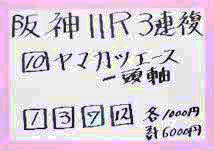 阪神11R 3連複
10 ヤマカツエース
一頭軸
1 3 9 12 各1000円
計6000円